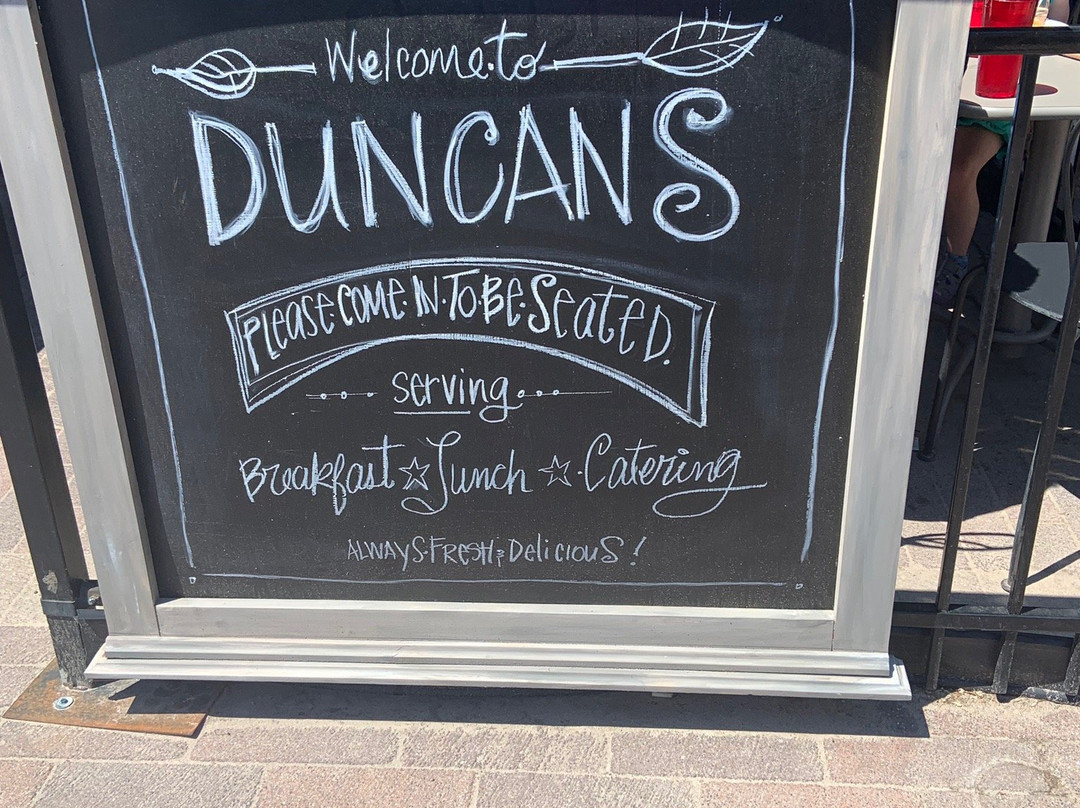 Welcome·to
DUNCANS
PLEASE·COME·IN·TO·BE·SeateD.
... serving...
Breakfast ☆ Lunch ☆ Catering
ALWAYS·FRESH & DeliciouS!